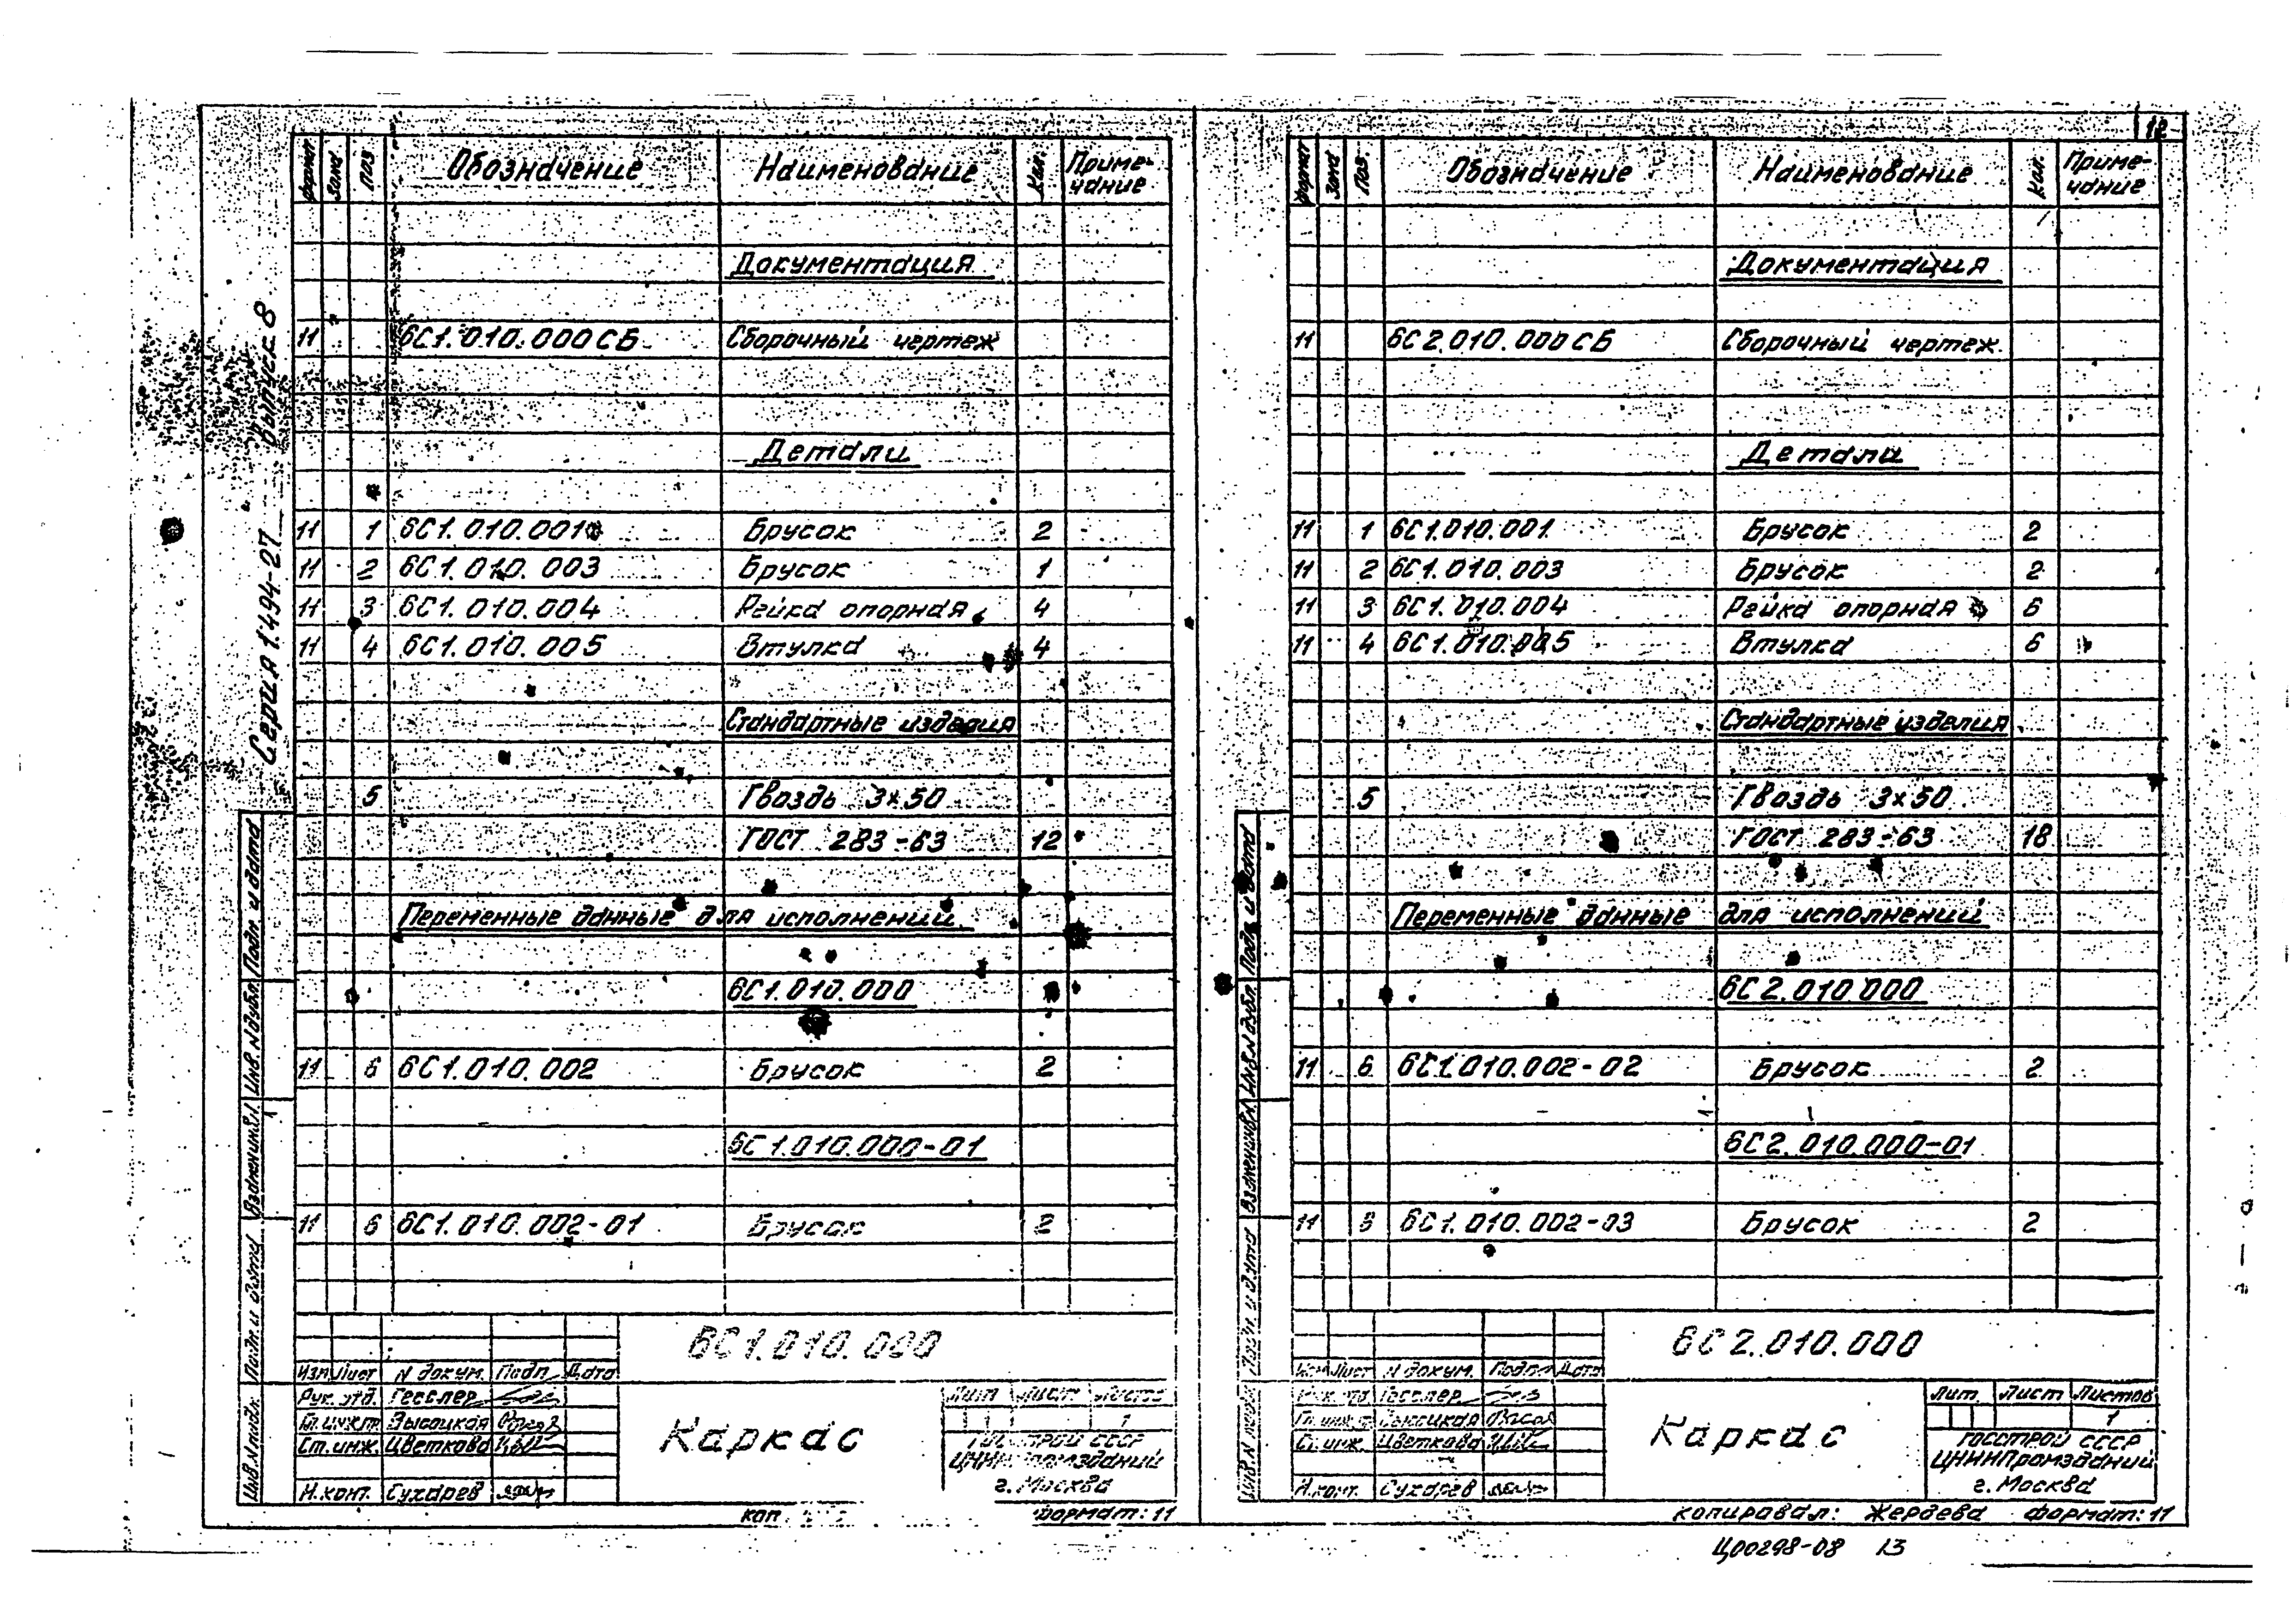 12
Серия 1.494-27 выпуск 8
Формат Зона Поз. Обозначение Наименование Кол. Приме-
чание
Документация
11 6С1.010.000СБ Сборочный чертеж
Детали
11 1 6С1.010.001 Брусок 2
11 2 6С1.010.003 Брусок 1
11 3 6С1.010.004 Рейка опорная 4
11 4 6С1.010.005 Втулка 4
Стандартные изделия
5 Гвоздь 3×50
ГОСТ 283-63 12
Переменные данные для исполнений
6С1.010.000
11 6 6С1.010.002 Брусок 2
6С1.010.000-01
11 6 6С1.010.002-01 Брусок 2
Инв.N подл. Подп. и дата Взаменинв.N Инв.N дубл. Подп. и дата
6С1.010.000
Изм Лист N докум. Подп. Дата
Рук. отд. Гесслер
Гл.инж.пр. Высоцкая
Ст.инж. Цветкова
Н.конт. Сухарев
Каркас
Лит Лист Листов
1
ГОССТРОЙ СССР
ЦНИИПромзданий
г. Москва
Коп
Формат: 11
Формат Зона Поз. Обозначение Наименование Кол. Приме-
чание
Документация
11 6С2.010.000СБ Сборочный чертеж
Детали
11 1 6С1.010.001 Брусок 2
11 2 6С1.010.003 Брусок 2
11 3 6С1.010.004 Рейка опорная 6
11 4 6С1.010.005 Втулка 6
Стандартные изделия
5 Гвоздь 3×50
ГОСТ 283-63 18
Переменные данные для исполнений
6С2.010.000
11 6 6С1.010.002-02 Брусок 2
6С2.010.000-01
11 6 6С1.010.002-03 Брусок 2
Инв.N подл. Подп. и дата Взаменинв.N Инв.N дубл. Подп. и дата
6С2.010.000
Изм Лист N докум. Подп. Дата
Рук. отд. Гесслер
Гл.инж.п. Высоцкая
Ст.инж. Цветкова
Н.конт. Сухарев
Каркас
Лит. Лист Листов
1
ГОССТРОЙ СССР
ЦНИИПромзданий
г. Москва
Копировал: Жердева Формат: 11
Ц00298-08 13